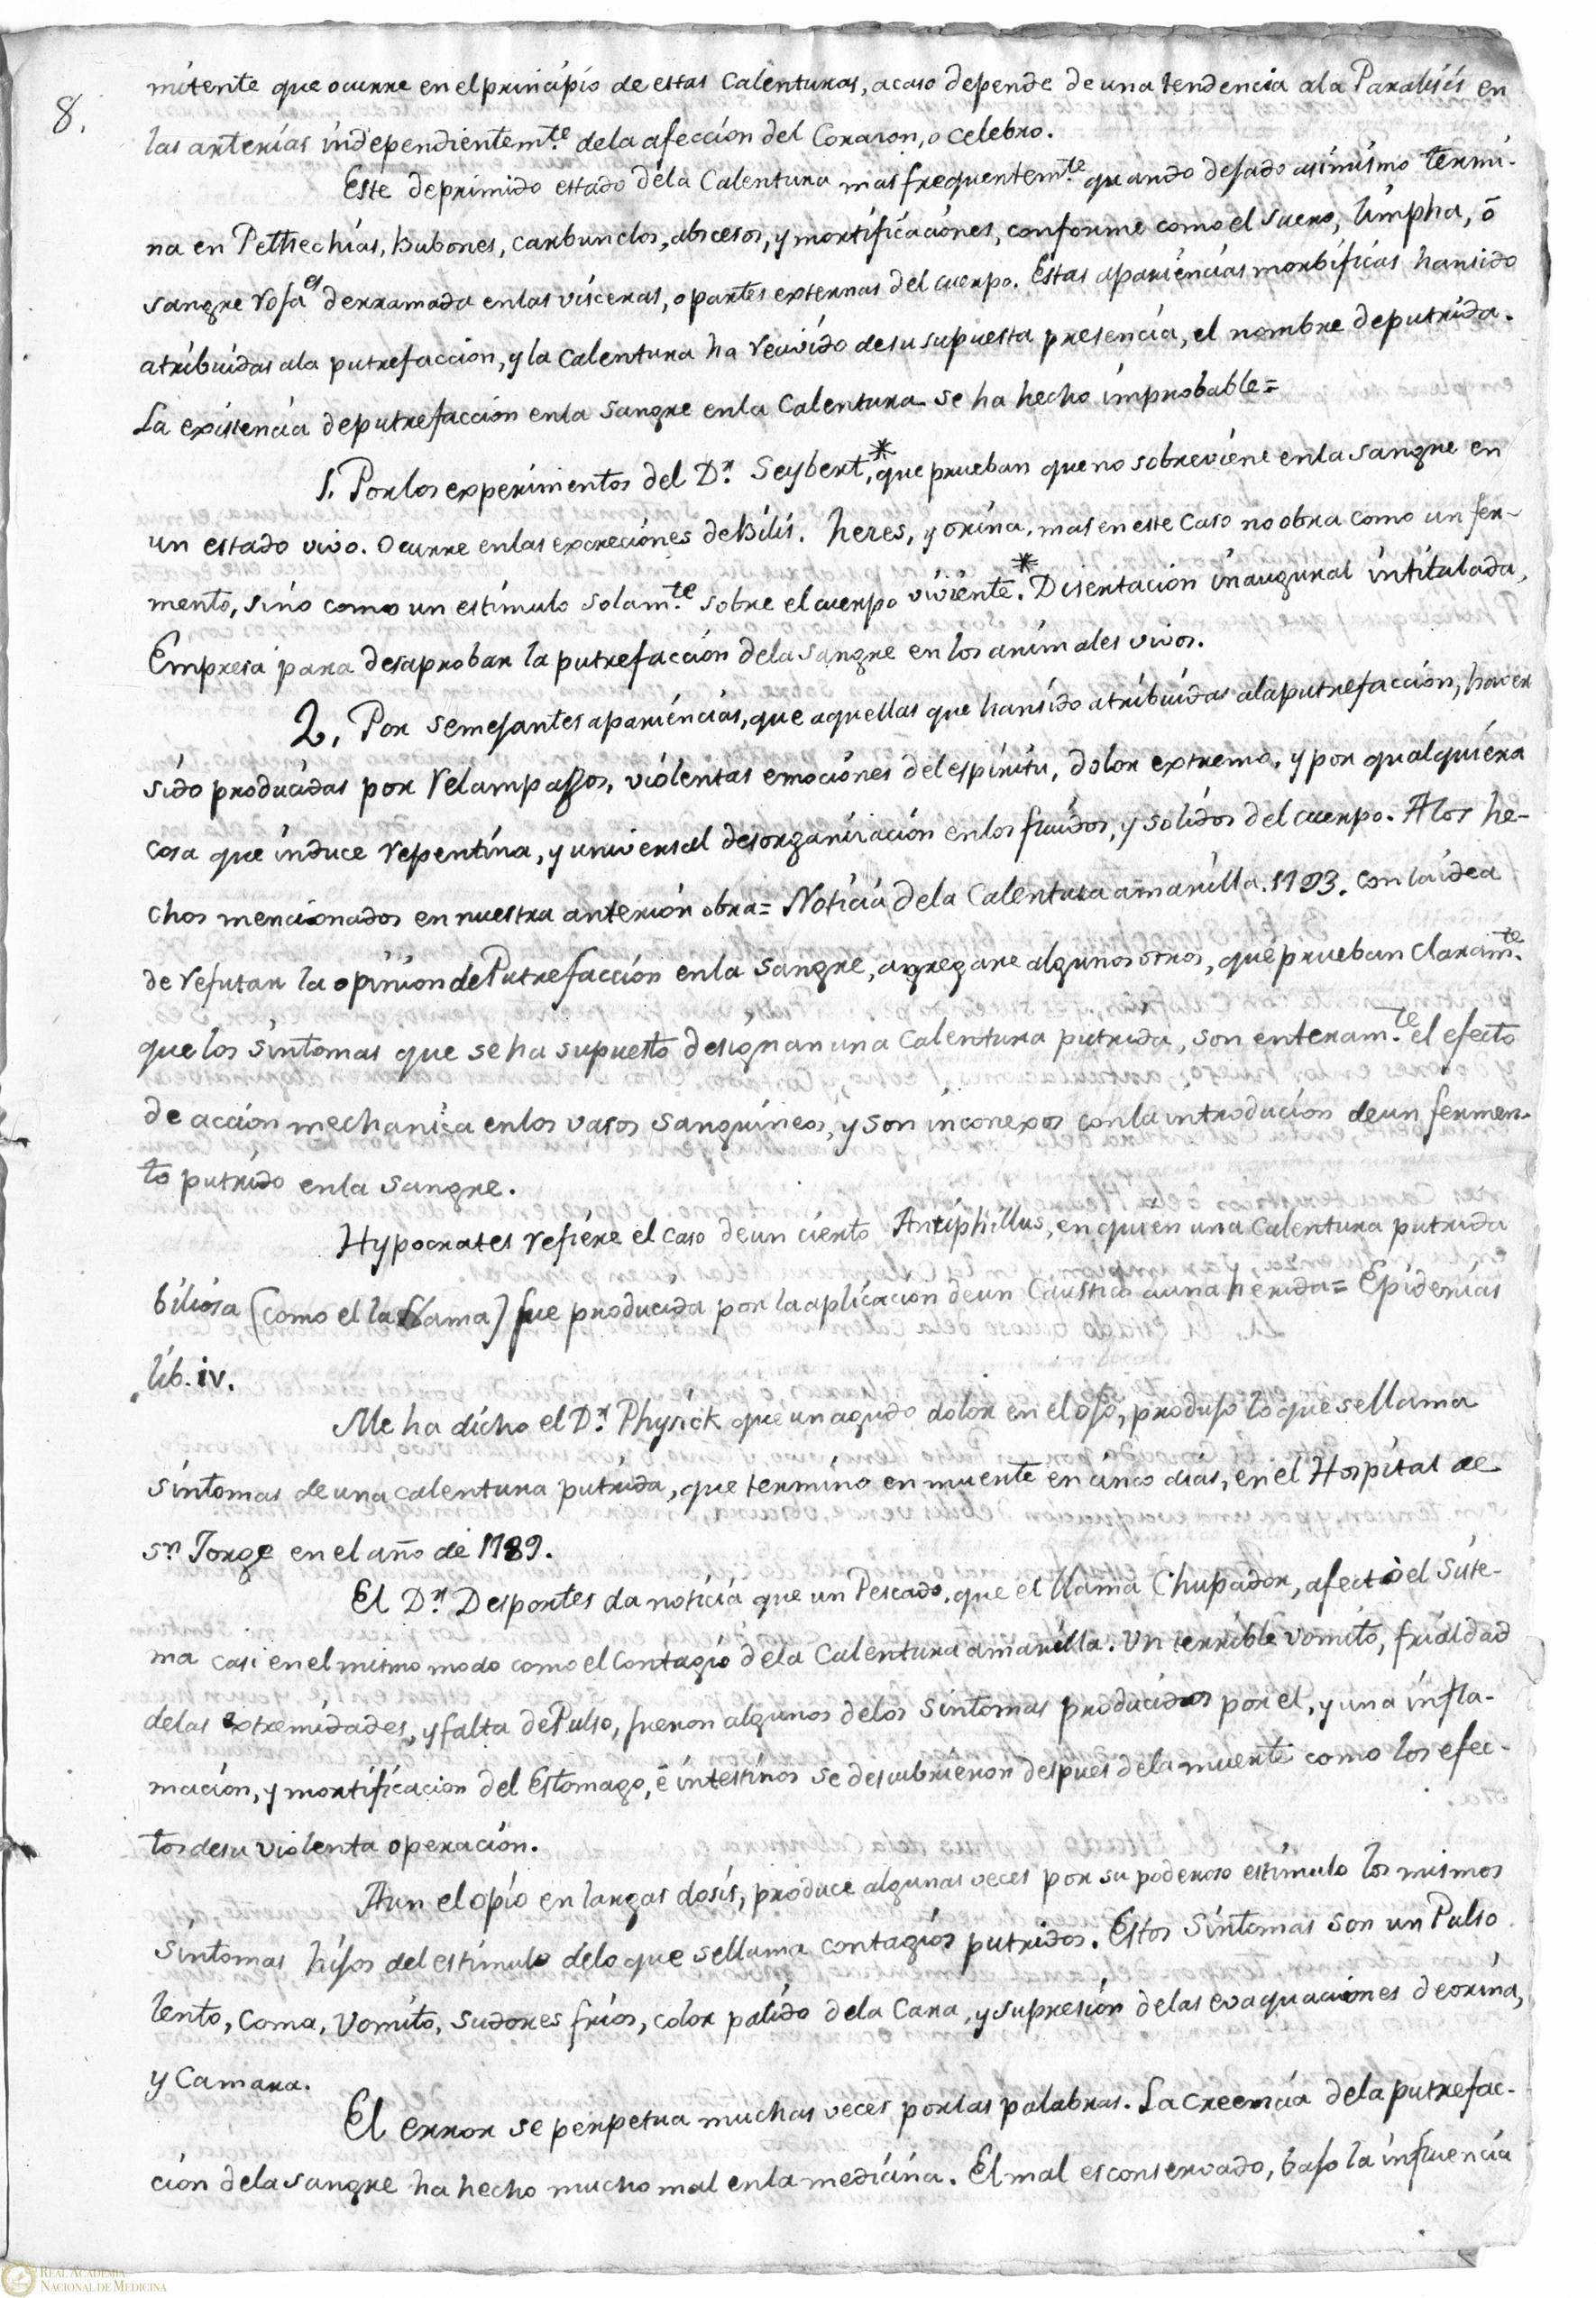 8.
mitente que ocurre en el principio de estas Calenturas, acaso depende de una tendencia ala Paralisis en
las arterias independientem.te dela afección del Corazon, o celebro.
Este deprimido estado dela Calentura mas frequentem.te quando dejado asimismo termi-
na en Pethechias, Bubones, carbunclos, abscesos, y mortificaciones, conforme como el suero, limpha, ó
sangre roja es derramada enlas visceras, o partes externas del cuerpo. Estas apariencias morbificas hansido
atribuidas ala putrefaccion, y la Calentura ha recivido desu supuesta presencia, el nombre deputrida.
La existencia deputrefaccion enla sangre enla Calentura se ha hecho improbable=
1. Porlos experimentos del D.r Seybert,* que prueban queno sobreviene enla sangre en
un estado vivo. Ocurre enlas excreciones deBilis. heces, y orina. mas en este Caso no obra como un fer-
mento, sino como un estimulo solam.te sobre el cuerpo viviente. * Disertacion inaugural intitulada,
Empresa para desaprobar la putrefacción dela sangre en los animales vivos.
2. Por semejantes apariencias, que aquellas que hansido atribuidas alaputrefacción, haver
sido producidas por relampagos, violentas emociones del espiritu, dolor extremo, y por qualquiera
cosa que induce repentina, y universal desorganización enlos fluidos, y solidos del cuerpo. A los he-
chos mencionados en nuestra anterior obra= Noticia dela Calentura amarilla. 1793. con la idea
de refutar la opinion dePutrefacción enla sangre, agregare algunos otros, que prueban claram.te
que los sintomas que se ha supuesto designan una Calentura putrida, son enteram.te el efecto
de acción mechanica enlos vasos sanguineos, y son inconexos con la introducion deun fermen-
to putrido enla sangre.
Hypocrates refiere el caso deun cierto Antiphillus, en quien una Calentura putrida
biliosa (como el la llama) fue producida por la aplicación deun Caustico auna herida= Epidemias
lib. iv.
Me ha dicho el D.r Physick que un agudo dolor en el ojo, produjo lo que sellama
sintomas de una calentura putrida, que termino en muerte en cinco dias, en el Hospital de
Sn. Jorge en el año de 1789.
El D.r Desportes da noticia que un Pescado, que el llama Chupador, afectó el siste-
ma casi en el mismo modo como el Contagio dela Calentura amarilla. Un terrible vomito, frialdad
delas extremidades, y falta dePulso, fueron algunos delos sintomas producidos por el, y una infla-
macion, y mortificacion del Estomago, é intestinos se descubrieron despues dela muerte como los efec-
tos desu violenta operación.
Aun el opio en largas dosis, produce algunas veces por su poderoso estimulo los mismos
sintomas hijos del estimulo delo que sellama contagios putridos. Estos sintomas son un Pulso
lento, Coma, Vomito, sudores frios, color palido dela Cara, y supresión delas evaquaciones deorina,
y Camara.
El error se perpetua muchas veces porlas palabras. La creencia dela putrefac-
ción dela sangre ha hecho mucho mal enla medicina. El mal es conservado, bajo la influencia
REAL ACADEMIA
NACIONAL DE MEDICINA